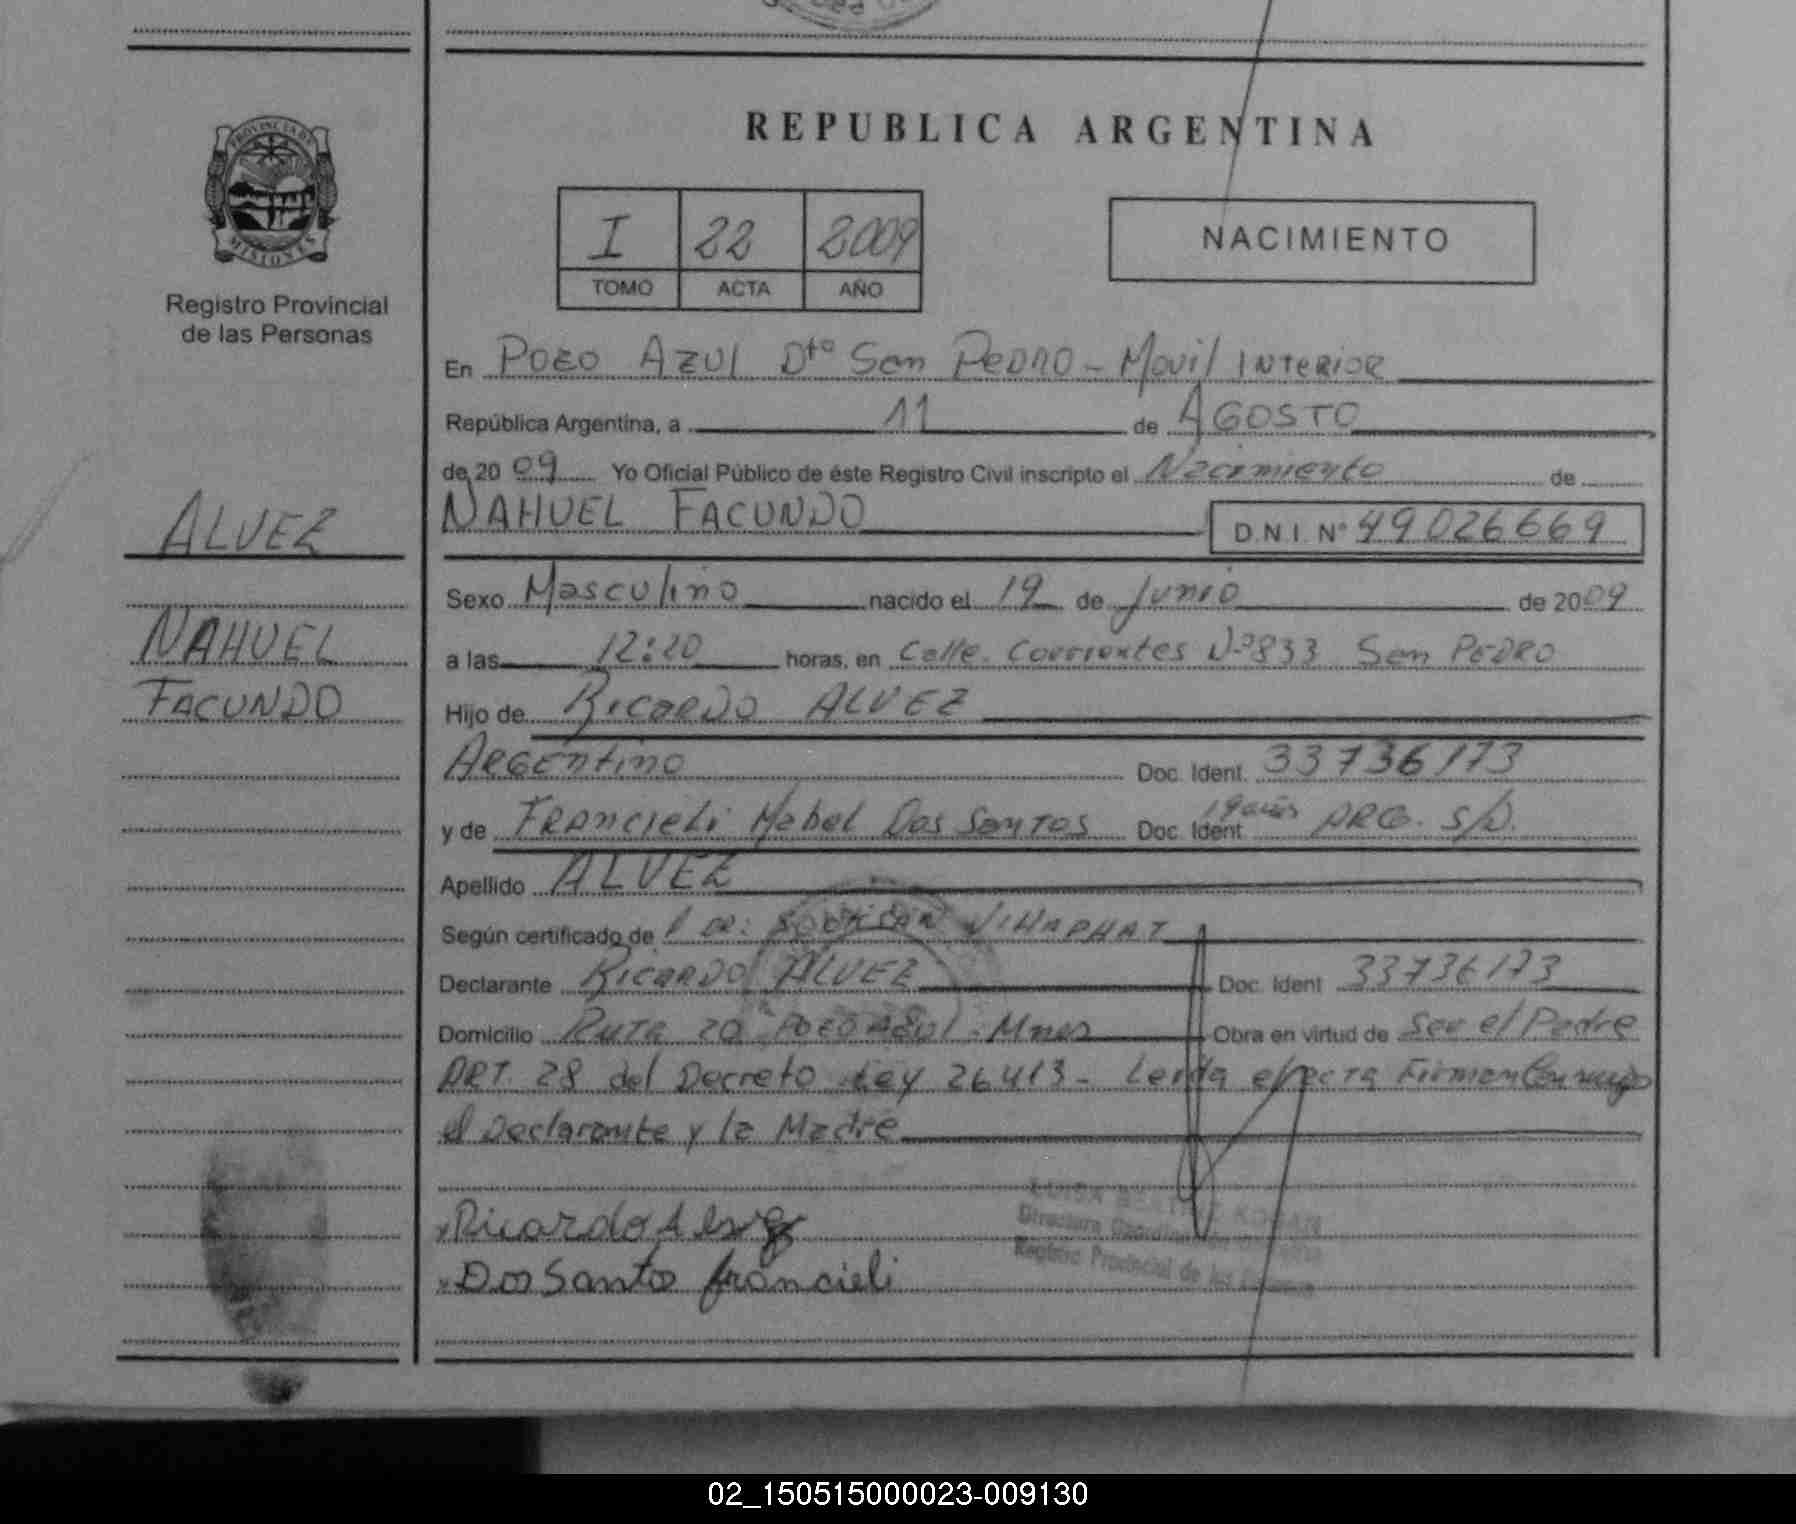 PROVINCIA DE
MISIONES
Registro Provincial
de las Personas
ALVEZ
NAHUEL
FACUNDO
REPUBLICA ARGENTINA
I 22 2009
TOMO ACTA AÑO
NACIMIENTO
En POZO AZUL Dto San PEDRO - Movil INTERIOR
República Argentina, a 11 de AGOSTO
de 20 09 Yo Oficial Público de éste Registro Civil inscripto el Nacimiento de
NAHUEL FACUNDO D.N.I. Nº 49026669
Sexo Masculino nacido el 19 de junio de 2009
a las 12:20 horas, en Calle Corrientes Nº 833 San PEDRO
Hijo de RICARDO ALVEZ
ARGENtino Doc. Ident. 33736173
y de FRANCIELi Mabel Dos SANTOS Doc. Ident 19 años ARG. S/D.
Apellido ALVEZ
Según certificado de
Declarante RICARDO ALVEZ Doc. Ident 33736173
Domicilio RUTA 20 POZO AZUL - Mnes Obra en virtud de Ser el Padre
ART. 28 del Decreto Ley 26413 - Leida el acta Firman Conmigo
el Declarante y la Madre
Ricardo Alvez
Dos Santos francieli
LUISA BEATRIZ KOGAN
Directora
Registro Provincial de las Personas
02_150515000023-009130